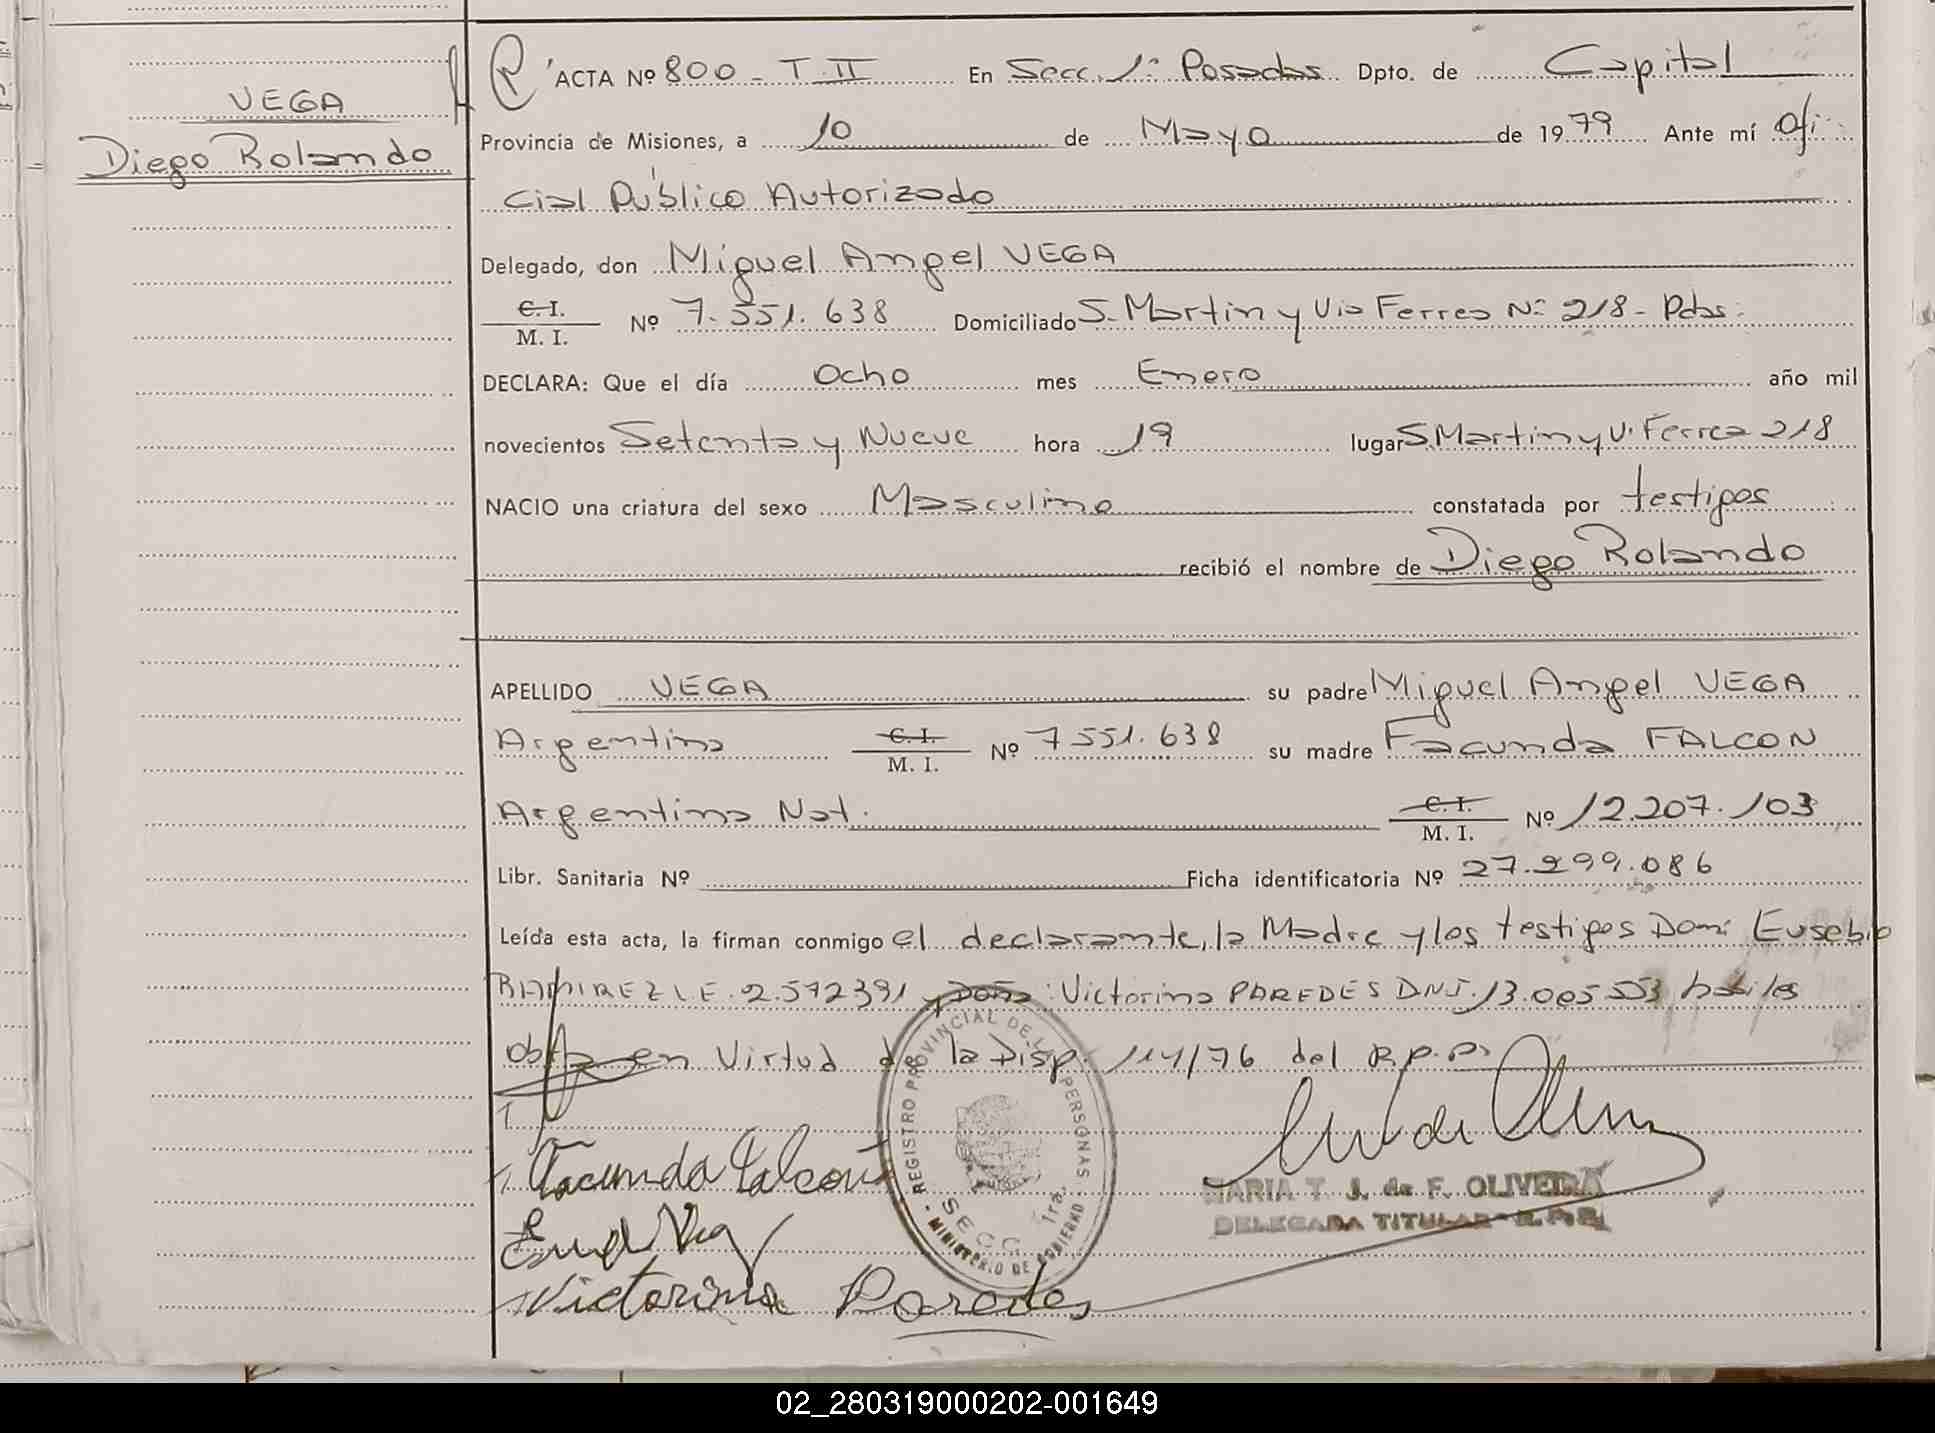 VEGA
Diego Rolando
ACTA Nº 800 - T. II En Secc. 1ª Posadas Dpto. de Capital
Provincia de Misiones, a 10 de Mayo de 1979 Ante mí Ofi-
cial Público Autorizado
Delegado, don Miguel Angel VEGA
C. I.
M. I. Nº 7.551.638 Domiciliado S. Martin y Via Ferrea Nº 218 - Pdas.
DECLARA: Que el día Ocho mes Enero año mil
novecientos Setenta y Nueve hora 19 lugar S. Martin y V. Ferrea 218
NACIO una criatura del sexo Masculino constatada por testigos
recibió el nombre de Diego Rolando
APELLIDO VEGA su padre Miguel Angel VEGA
Argentino C. I. M. I. Nº 7551.638 su madre Facunda FALCON
Argentina Nat. C. I. M. I. Nº 12.207.103
Libr. Sanitaria Nº Ficha identificatoria Nº 27.299.086
Leída esta acta, la firman conmigo el declarante, la Madre y los testigos Don: Eusebio
RAMIREZ L.E. 2.572391 y Doña: Victorina PAREDES DNI. 13.005553 habiles
en Virtud de la Disp. 114/76 del R.P.P.
Facunda Falcon
Victorina Paredes
REGISTRO PROVINCIAL DE LAS PERSONAS
SECC. 1ra.
MINISTERIO DE GOBIERNO
MARIA T. J. de F. OLIVEIRA
DELEGADA TITULAR - R.P.P.
02_280319000202-001649